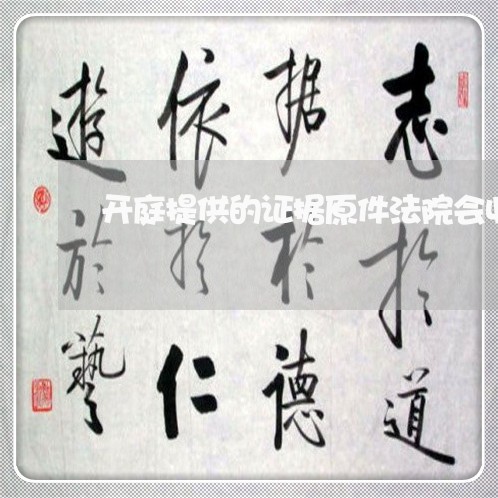 志於道
据於德
依於仁
遊於藝
开庭提供的证据原件法院会